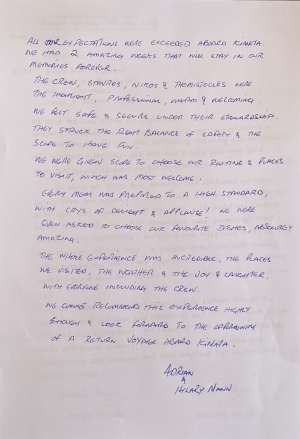 ALL OUR EXPECTATIONS WERE EXCEEDED ABOARD KINATA
WE HAD 2 AMAZING WEEKS THAT WILL STAY IN OUR
MEMORIES FOREVER.
THE CREW, STAVROS, NIKOS & THEMISTOCLES WERE
THE THOUGHTFUL, PROFESSIONAL, WARM & WELCOMING
WE FELT SAFE & SECURE UNDER THEIR STEWARDSHIP.
THEY STRUCK THE RIGHT BALANCE OF SAFETY & THE
SCOPE TO HAVE FUN.
WE WERE GIVEN SCOPE TO CHOOSE OUR ROUTING & PLACES
TO VISIT, WHICH WAS MOST WELCOME.
EVERY MEAL WAS PREPARED TO A HIGH STANDARD,
WITH CRYS OF DELIGHT & APPLAUSE! WE WERE
EVEN ASKED TO CHOOSE OUR FAVOURITE DISHES, ABSOLUTELY
AMAZING.
THE WHOLE EXPERIENCE WAS INCREDIBLE, THE PLACES
WE VISITED, THE WEATHER & THE JOY & LAUGHTER,
WITH EVERYONE INCLUDING THE CREW.
WE CANNOT RECOMMEND THIS EXPERIENCE HIGHLY
ENOUGH & LOOK FORWARD TO THE OPPORTUNITY
OF A RETURN VOYAGE ABOARD KINATA.
ADRIAN
&
HILARY